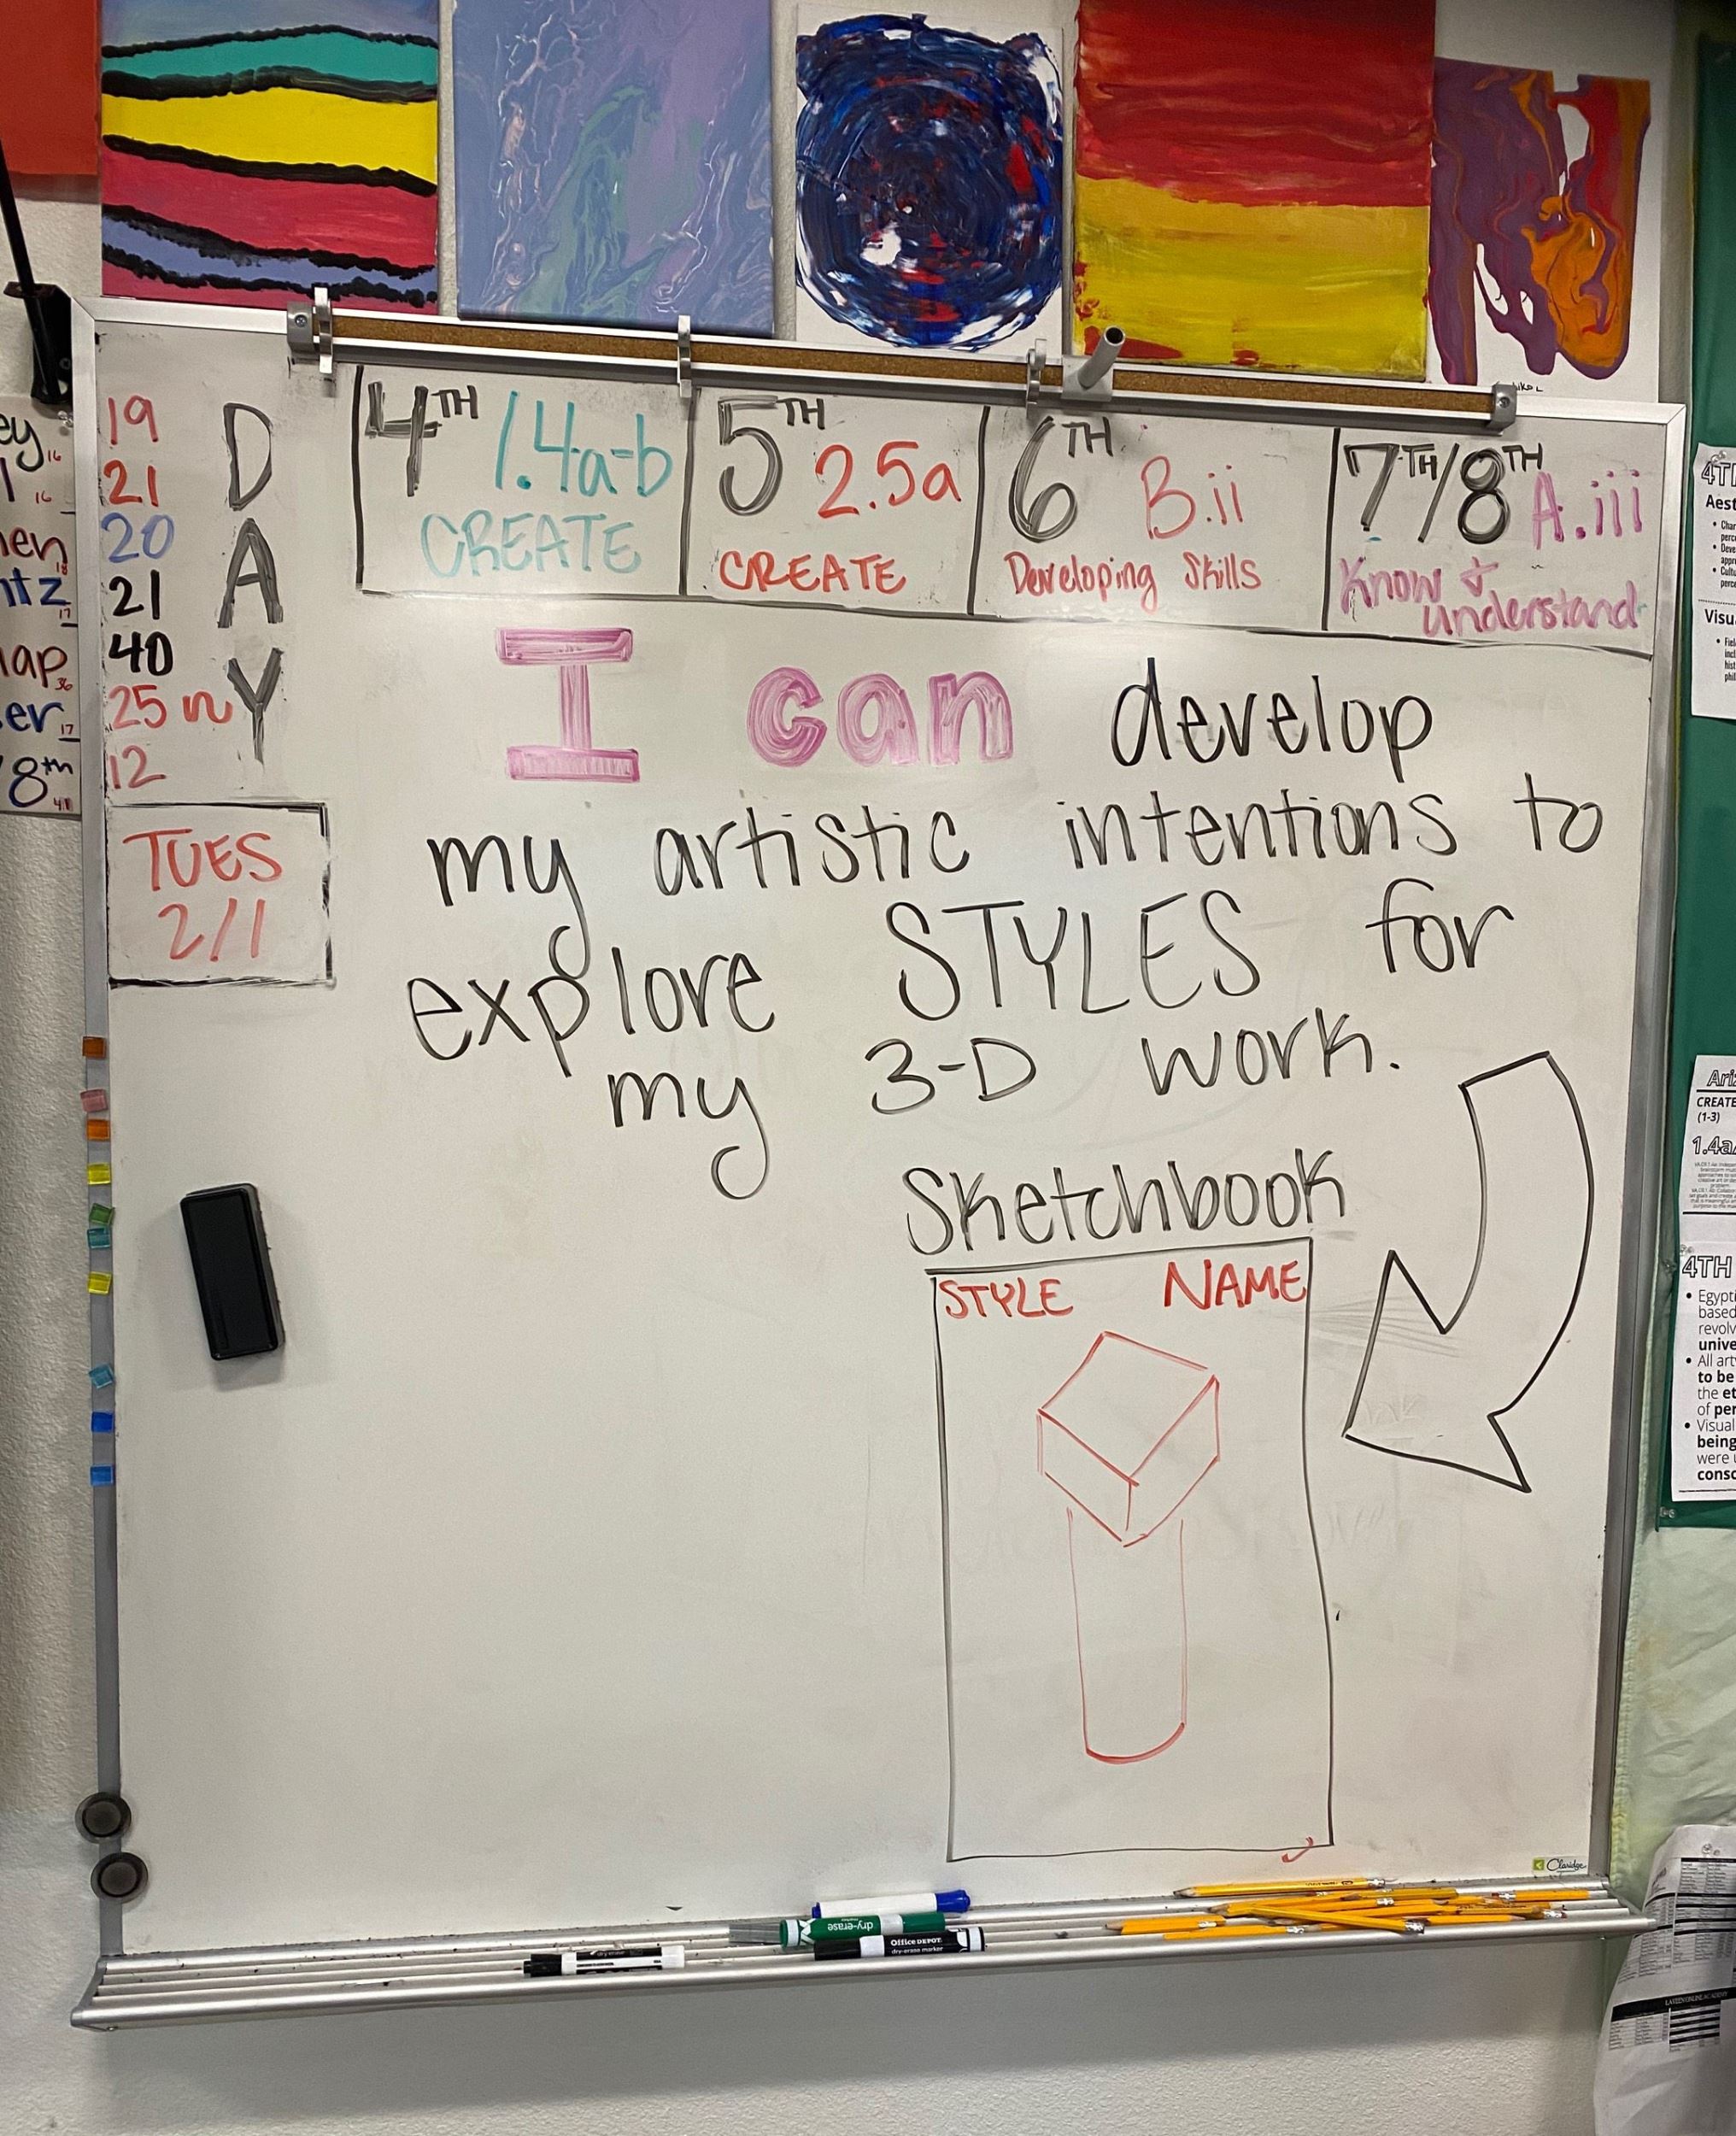 19
21
20
21
40
25
12
D
A
Y
TUES
2/1
4TH 1.4a-b
CREATE
5TH 2.5a
CREATE
6TH B.ii
Developing Skills
7TH/8TH A.iii
Know & understand
I can develop
my artistic intentions to
explore STYLES for
my 3-D work.
Sketchbook
STYLE NAME
ey 16
16
en 18
ntz 17
ap 36
er 17
8th 41
4TH
Aest
Visu
CREATE
(1-3)
1.4a
4TH
Egypti
based
revolv
unive
All art
to be
the et
of per
Visual
being
were
consc
Claridge
dry-erase
Office DEPOT
dry-erase marker